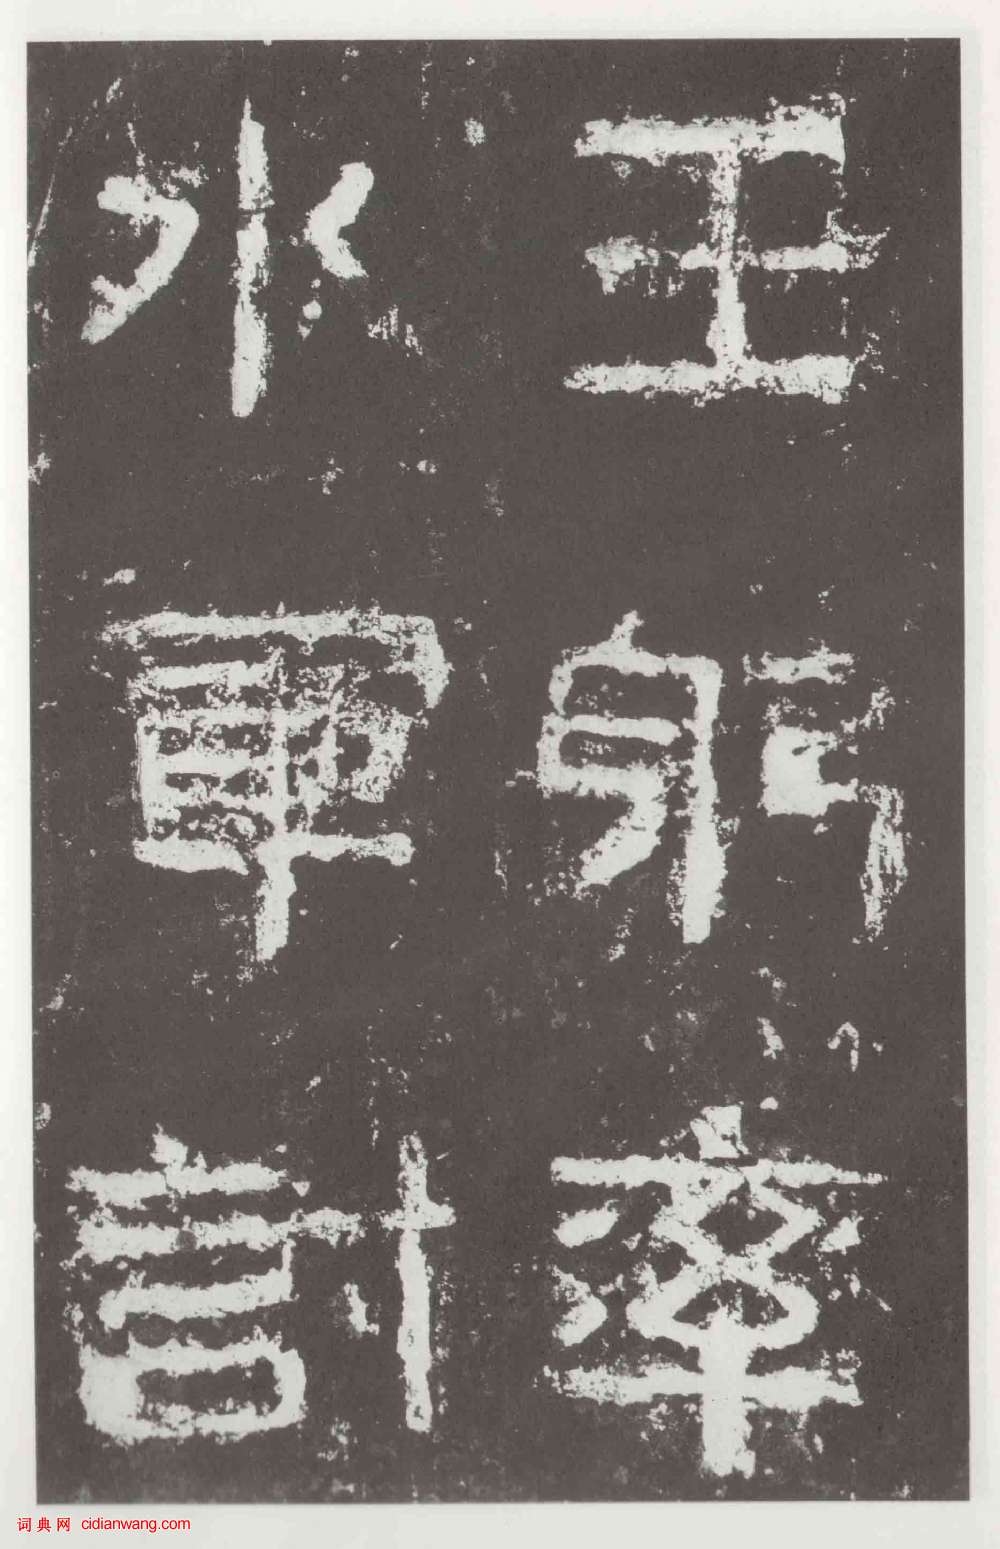 王躬率
水軍討
词典网 cidianwang.com